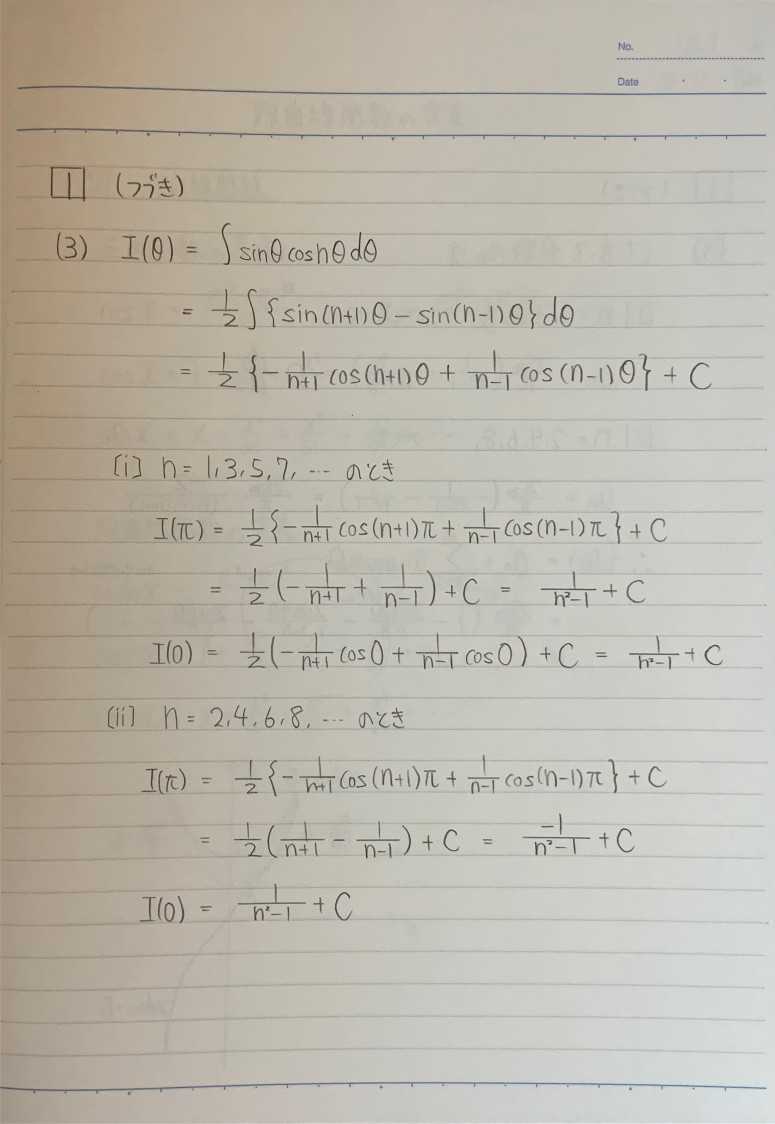 No.
Date
1 (つづき)
(3) I(θ) = ∫ sinθ cosnθ dθ
= 1/2 ∫ {sin(n+1)θ − sin(n−1)θ} dθ
= 1/2 {− 1/(n+1) cos(n+1)θ + 1/(n−1) cos(n−1)θ} + C
[i] n = 1, 3, 5, 7, … のとき
I(π) = 1/2 {− 1/(n+1) cos(n+1)π + 1/(n−1) cos(n−1)π} + C
= 1/2 (− 1/(n+1) + 1/(n−1)) + C = 1/(n²−1) + C
I(0) = 1/2 (− 1/(n+1) cos0 + 1/(n−1) cos0) + C = 1/(n²−1) + C
[ii] n = 2, 4, 6, 8, … のとき
I(π) = 1/2 {− 1/(n+1) cos(n+1)π + 1/(n−1) cos(n−1)π} + C
= 1/2 (1/(n+1) − 1/(n−1)) + C = −1/(n²−1) + C
I(0) = 1/(n²−1) + C